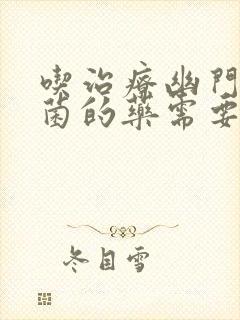 喫治療幽門
菌的藥需要
冬目雪